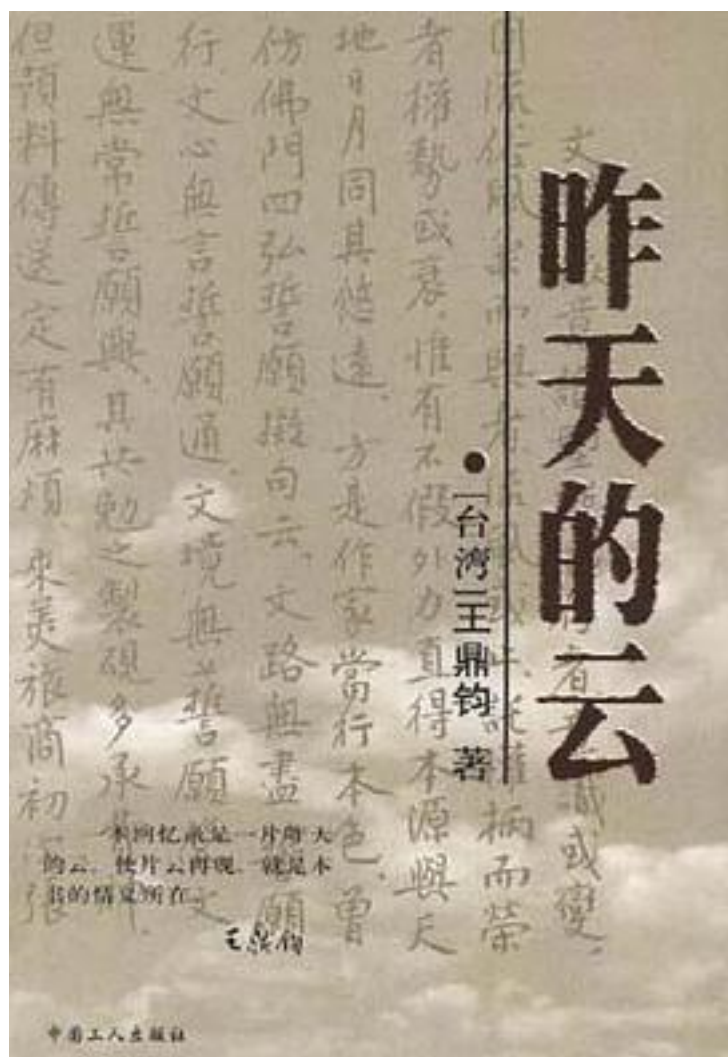 昨天的云
●[台湾]王鼎钧 著
或變、
而興者 權柄而榮
者權勢或衰、惟有不假外力直得本源與天
地日月同其悠遠、方是作家當行本色、曾
仿佛門四弘誓願擬句云、文路無盡誓願
行、文心無言誓願通、文境無上誓願 文
運無常誓願興、其共勉之製硯多承
但預料傳送定有麻煩、來美旅商初 張
一本回忆录是一片昨天
的云，使片云再现，就是本
书的情 所在。
王鼎钧
中国工人出版社